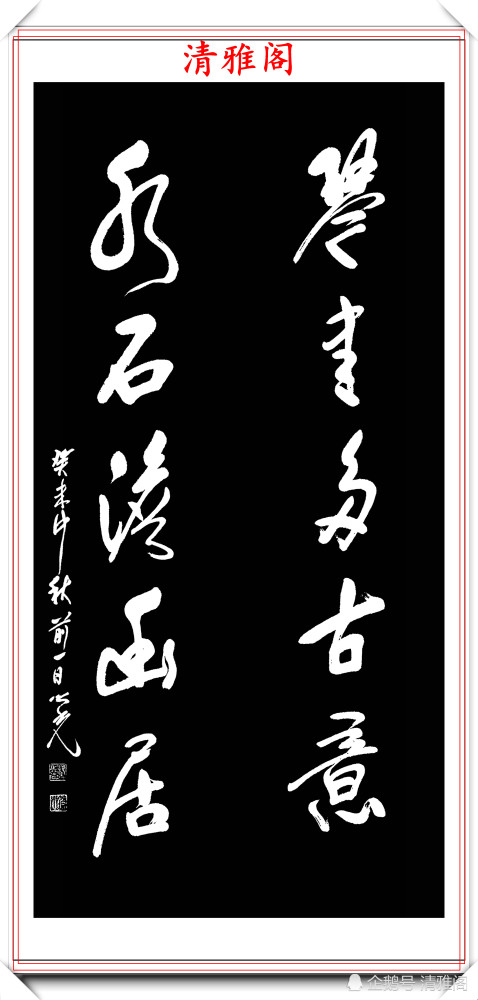 清雅阁
琴书多古意
水石澹幽居
癸未中秋前一日
企鹅号 清雅阁